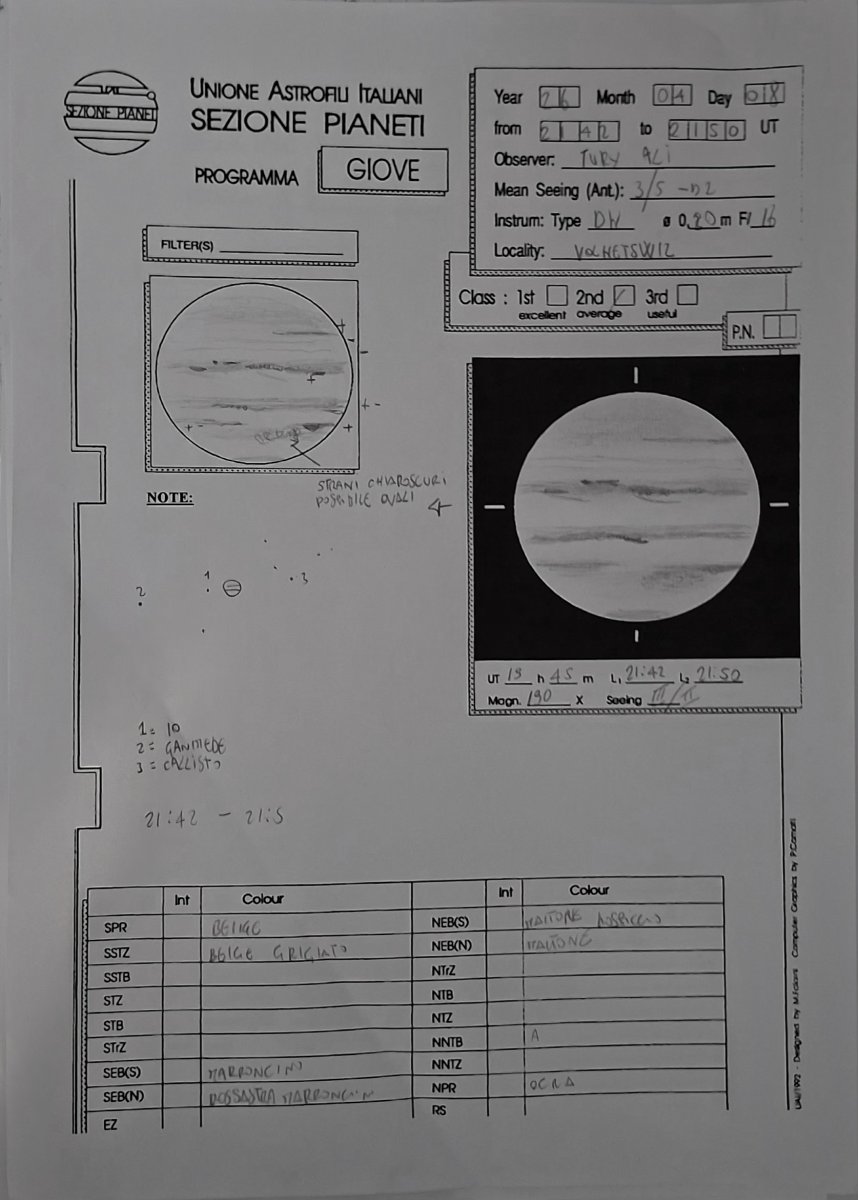 UAI
SEZIONE PIANETI
UNIONE ASTROFILI ITALIANI
SEZIONE PIANETI
PROGRAMMA GIOVE
Year 26 Month 04 Day 08
from 2142 to 2150 UT
Observer: TURY ALI
Mean Seeing (Ant.): 3/5
Instrum: Type ø 0,20 m F/ 16
Locality:
Class : 1st 2nd 3rd
excellent average useful
P.N.
FILTER(S)
+
-
-
+
+ -
+
+
STRANI CHIAROSCURI
POSSIBILE OVALI
NOTE:
1
2
3
1 = IO
2 = GANMEDE
3 = CALLISTO
21:42 - 21:5
UT 19 h 45 m L1 21:42 L2 21:50
Magn. 190 X Seeing III/II
Int Colour Int Colour
SPR BEIGE NEB(S)
SSTZ BEIGE GRIGIATO NEB(N) MATTONE
SSTB NTrZ
STZ NTB
STB NTZ
STrZ NNTB A
SEB(S) MARRONCINO NNTZ
SEB(N) ROSSASTRA MARRONCIN NPR OCRA
EZ RS
UAI/1992 - Designed by Computer Graphics by